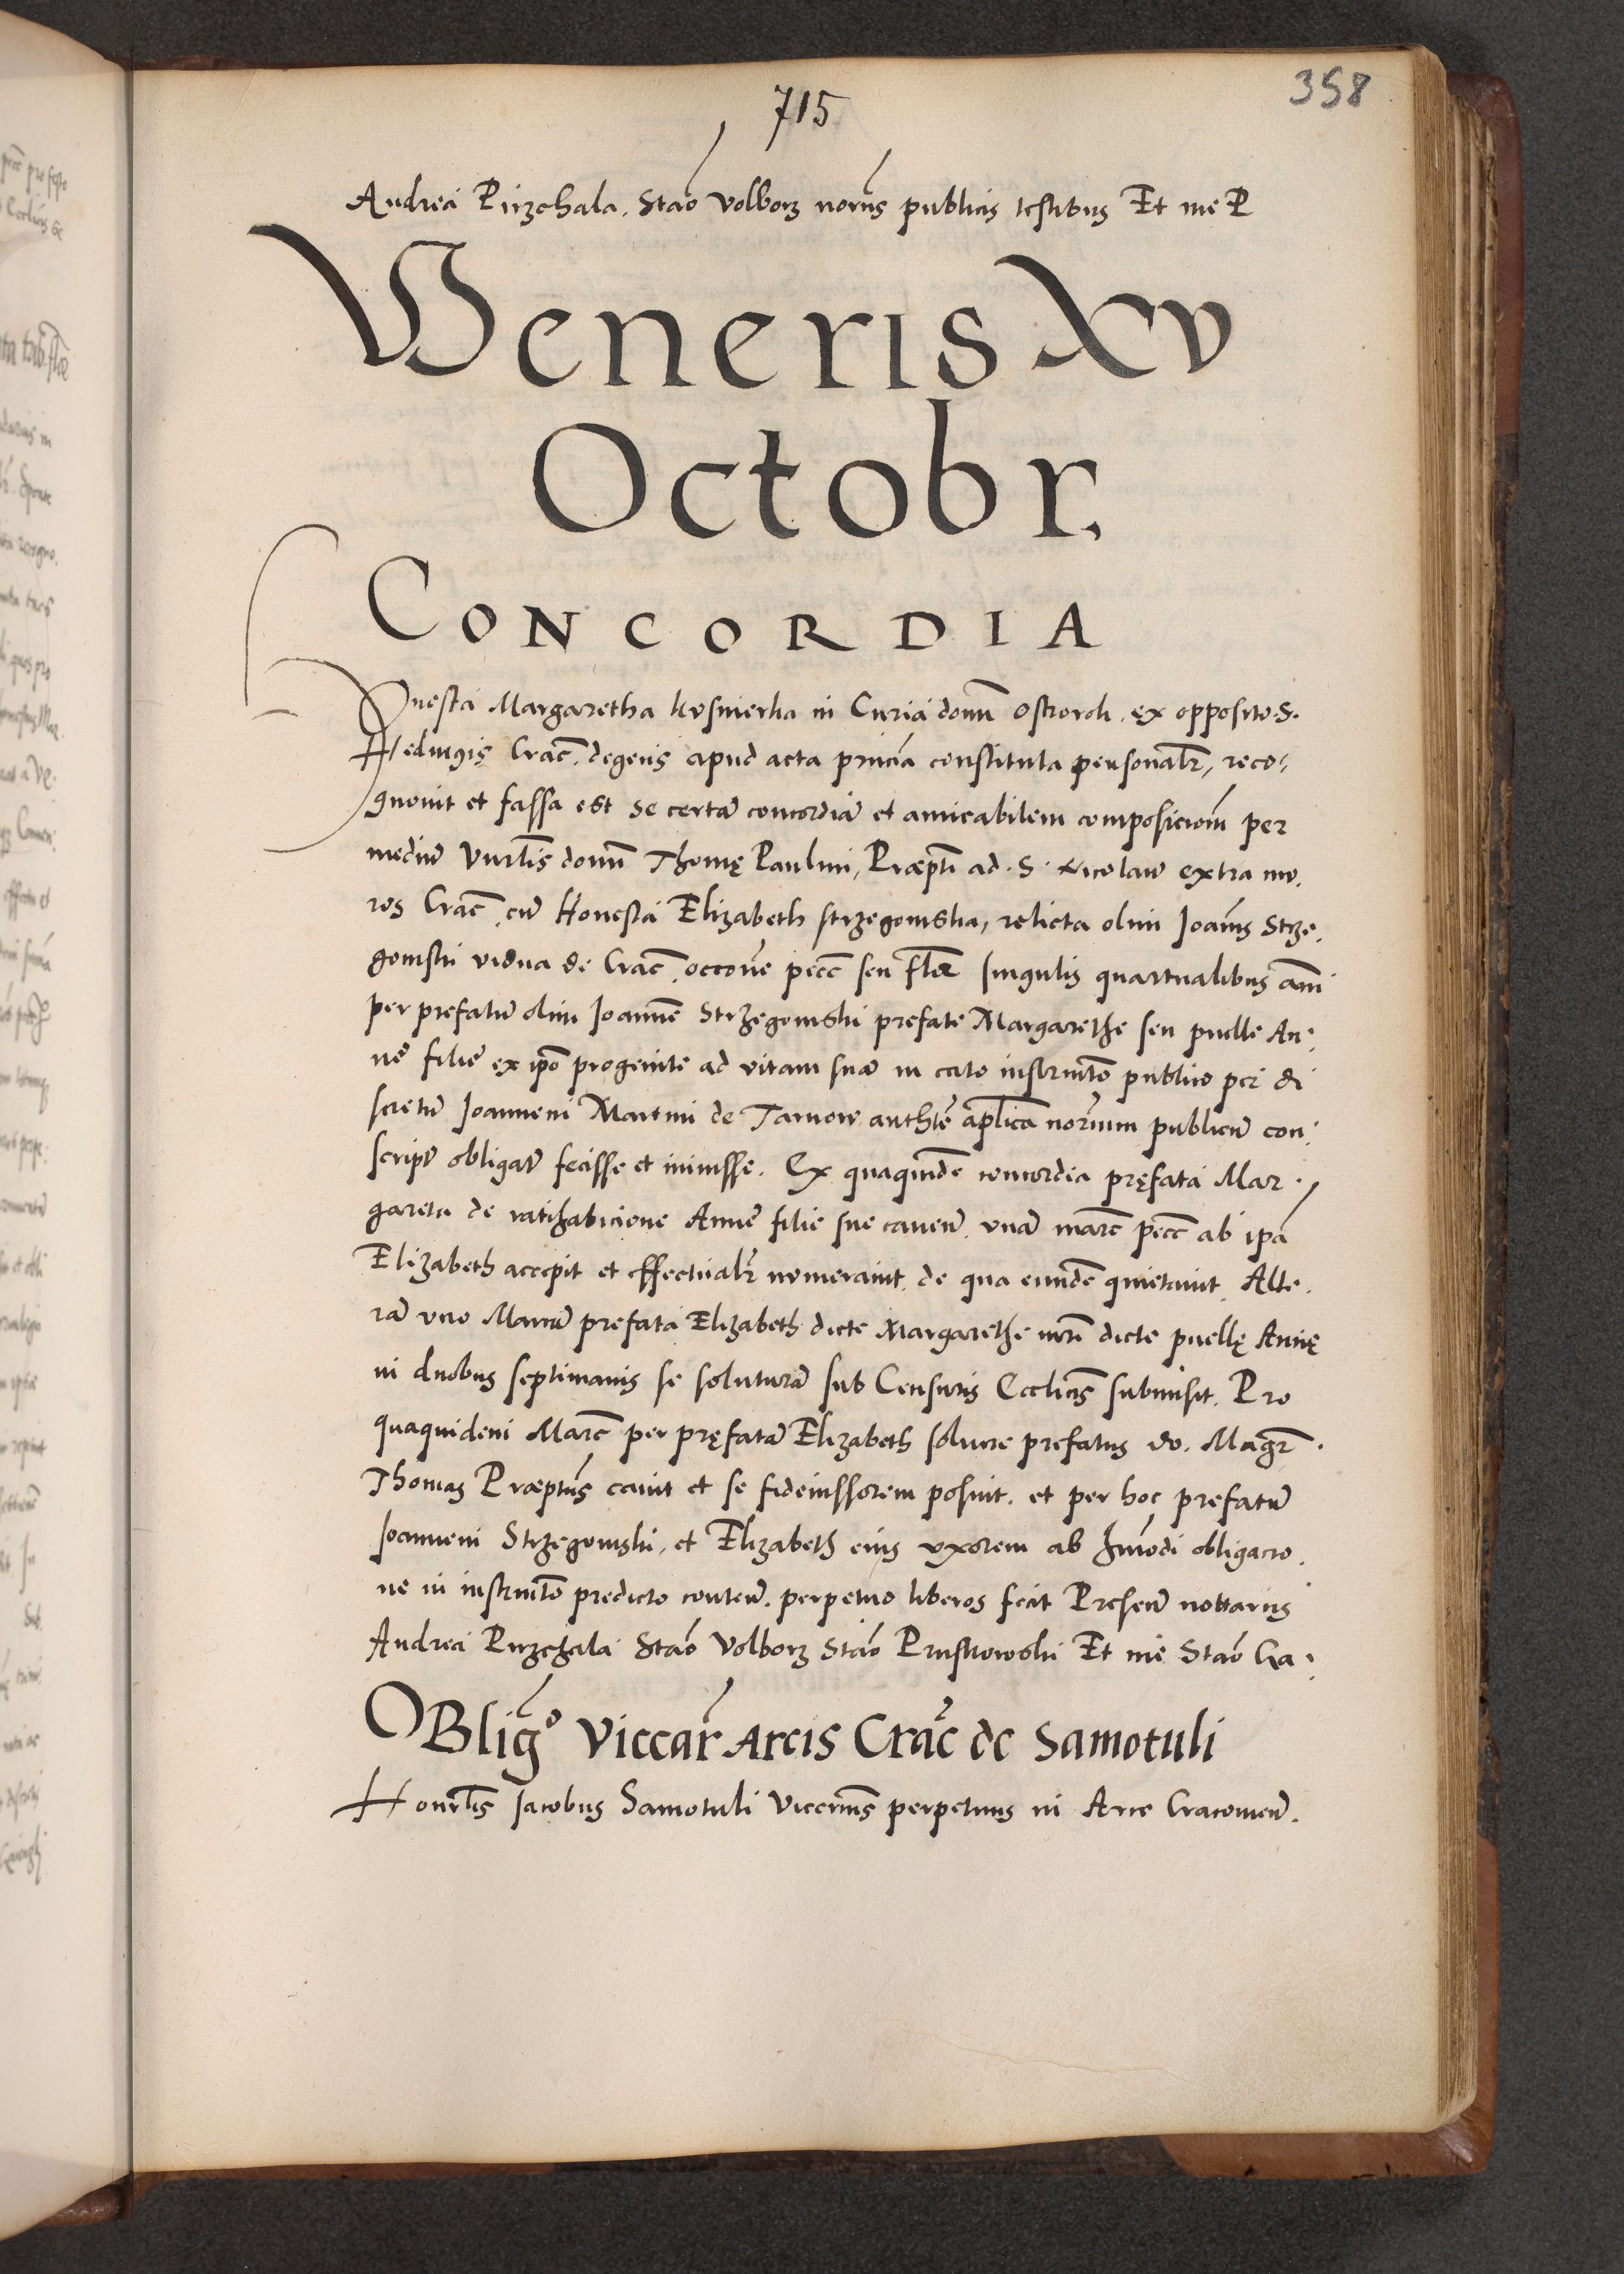 358
715
Andrea Pirzchala. Stão Volborz norijs publicis testibus Et me P
Veneris XV
Octobr.
CONCORDIA
Honesta Margaretha kusnierka in Curia domi Ostroroh. ex opposito. S.
Hedwigis Crac̃. degens apud acta pñcia constituta personalr̃, reco-
gnouit et fassa est se certã concordiã et amicabilem composicioñ per
mediũ Vnrlis domi Thomę Paulini, Præpti ad. S. Nicolaũ extra mu.
ros Crac̃. cũ Honesta Elizabeth strzegomska, relicta olim Joañis Strze.
gomski vidua de Crac̃. occoñe pecc̃ seu flor̃ singulis quartualibus añi
per prefatũ olim Joannẽ Strzegomski prefate Margarethe seu puelle An.
nẽ filiẽ ex ipõ progenite ad vitam suã in certo instrumto publico per di
scretũ Joannem Martini de Tarnow authẽ aplica norium publicũ con.
script̃ obligat̃ fecisse et inisse. Ex quaquidẽ concordia pręfata Mar.
gareta de ratihabicione Annẽ filie sue cauen̄. vnã marc̃ pecc̃ ab ipã
Elizabeth accepit et effectualr̃ numerauit. de qua eundẽ quietauit. Alte.
rã vero Marcã prefata Elizabeth dicte Margarethe nõie dicte puellę Annę
in duobus septimanis se soluturã sub Censuris Ecclicis submisit. Pro
quaquidem Marc̃ per pręfatã Elizabeth soluere prefatus do. Magr̃.
Thomas Præptus cauit et se fideiussorem posuit. et per hoc prefatũ
Joannem Strzegomski, et Elizabeth eius vxorem ab hmõdi obligacio.
ne in instrumto predicto conten̄. perpetuo liberos fecit Presen̄ nottarijs
Andrea Pirzchala Stão Volborz Stão Prustkowski Et me Stão Ga.
OBligõ Viccar̃ Arcis Crac̃ de Samotuli
Honrlis Jacobus Samotuli Viccrius perpetuus in Arce Cracouien̄.